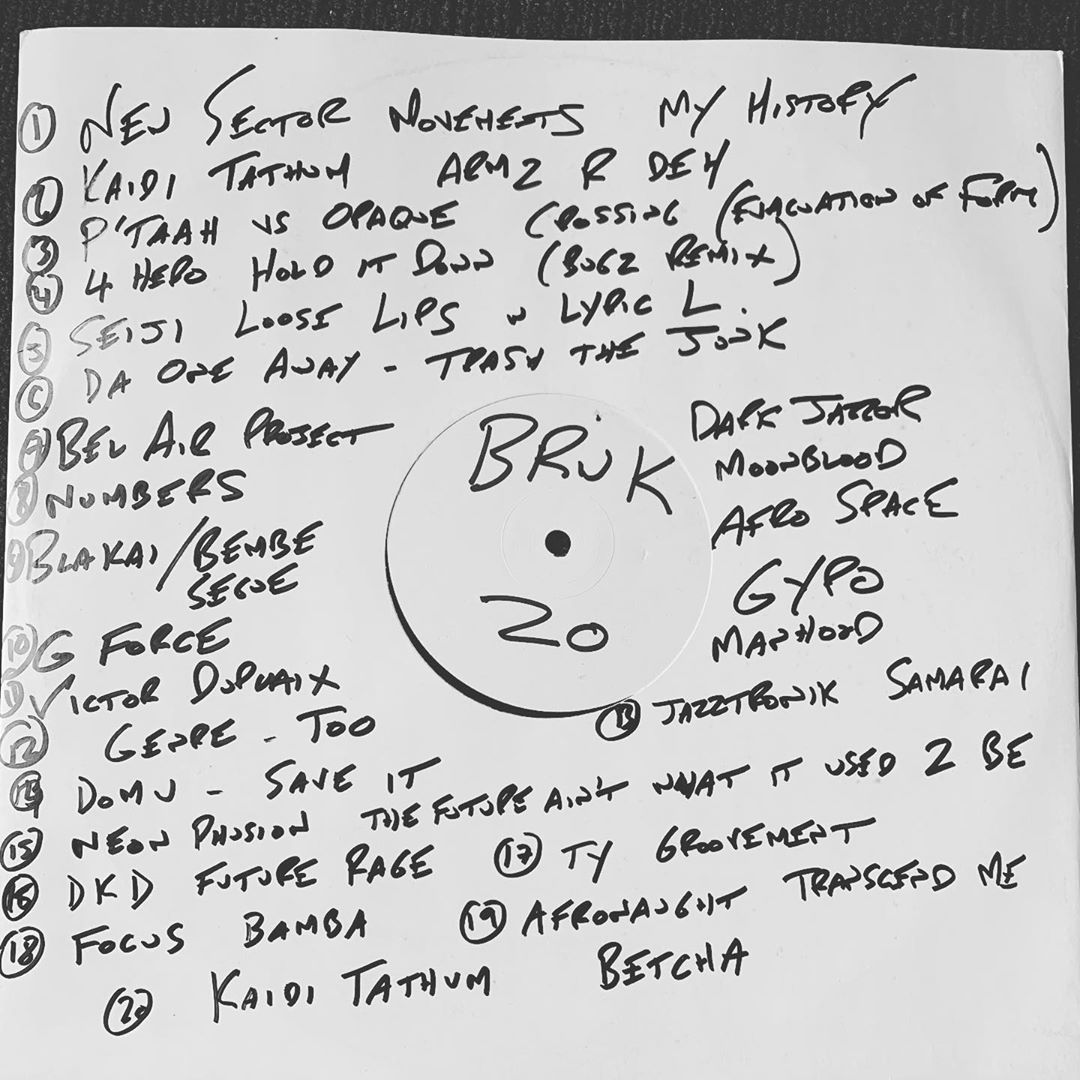 ① NEW SECTOR MOVEMENTS MY HISTORY
② KAIDI TATHUM ARMZ R DEH
③ P'TAAH VS OPAQUE CROSSING (EVACUATION OF FORM)
④ 4 HERO HOLD IT DOWN (BUGZ REMIX)
⑤ SEIJI LOOSE LIPS W LYRIC L.
⑥ DA ONE AWAY - TRASH THE JUNK
⑦ BEL AIR PROJECT DARK JAZZOR
⑧ NUMBERS MOONBLOOD
⑨ BLAKAI/BEMBE SEGUE AFRO SPACE
⑩ G FORCE GYPO
⑪ VICTOR DUPLAIX MANHOOD
BRUK
20
⑫ GENRE - TOO
⑬ JAZZTRONIK SAMARAI
⑭ DOMU - SAVE IT
⑮ NEON PHUSION THE FUTURE AIN'T WHAT IT USED 2 BE
⑯ DKD FUTURE RAGE ⑰ TY GROOVEMENT
⑱ FOCUS BAMBA ⑲ AFRONAUGHT TRANSCEND ME
⑳ KAIDI TATHUM BETCHA